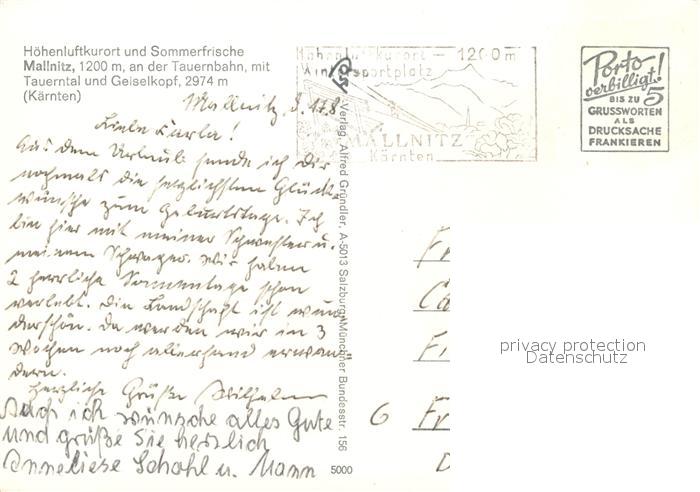 Höhenluftkurort und Sommerfrische
Mallnitz, 1200 m, an der Tauernbahn, mit
Tauerntal und Geiselkopf, 2974 m
(Kärnten)
Höhenluftkurort – 1200m
Wintersportplatz
MALLNITZ
Kärnten
Porto
verbilligt!
BIS ZU 5
GRUSSWORTEN
ALS
DRUCKSACHE
FRANKIEREN
Mallnitz, d. 17.8
Liebe Carla!
Aus dem Urlaub sende ich Dir
nochmals die herzlichsten Glück-
wünsche zum Geburtstage. Ich
bin hier mit meiner Schwester u.
meinem Schwager. Wir haben
2 herrliche Sonnentage schon
verlebt. Die Landschaft ist wun-
derschön. Da werden wir in 3
Wochen noch allerhand erwan-
dern.
Herzliche Grüße Wilhelm
Auch ich wünsche alles Gute
und grüße Sie herzlich
Anneliese Schohl u. Mann
Verlag Alfred Gründler, A-5013 Salzburg, Münchner Bundesstr. 156
5000
Fr
Ca
6 Fr
privacy protection
Datenschutz